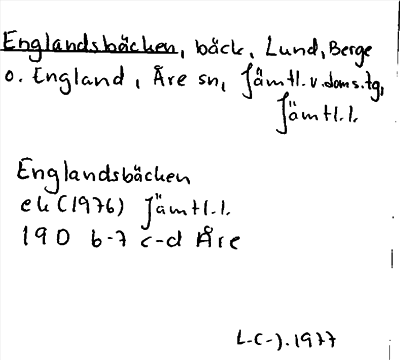 Englandsbäcken, bäck, Lund, Berge
o. England, Åre sn, Jämtl. v. doms.tg,
Jämtl.l.
Englandsbäcken
ek (1976) Jämtl.l.
19D b-7 c-d Åre
L-C-J. 1977